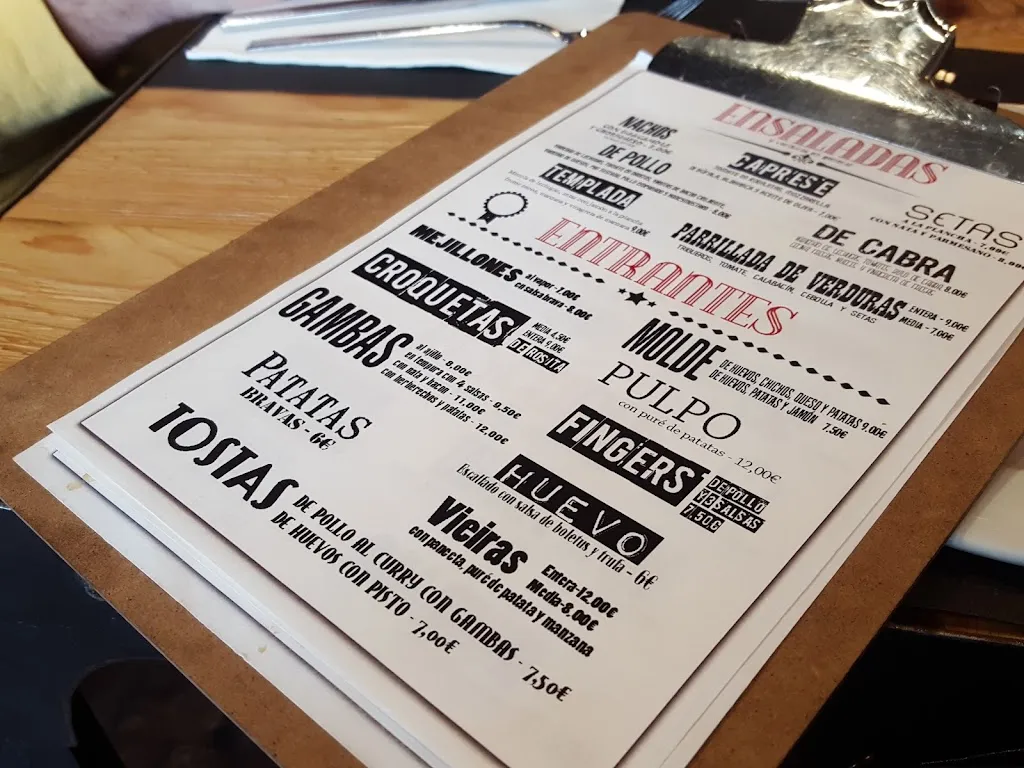 ENSALADAS
NACHOS
DE POLLO
8,00€
TEMPLADA
9,00€
CAPRESE
7,00€
SETAS
CON SALSA Y PARMESANO - 8,00€
DE CABRA
8,00€
PARRILLADA DE VERDURAS
TRIGUEROS, TOMATE, CALABACÍN, CEBOLLA Y SETAS
ENTERA - 9,00€
MEDIA - 7,00€
ENTRANTES
MEJILLONES
al vapor - 7,00€
en salsa brava - 8,00€
CROQUETAS
MEDIA 4,50€
ENTERA 9,00€
DE ROSITA
GAMBAS
al ajillo - 8,00€
en tempura con 4 salsas - 9,50€
con nata y bacon - 11,00€
con berberechos y patatas - 12,00€
PATATAS
BRAVAS - 6€
MOLDE
DE HUEVOS, CHICHOS, QUESO Y PATATAS 9,00€
DE HUEVOS, PATATAS Y JAMÓN 7,50€
PULPO
con puré de patatas - 12,00€
FINGERS
DE POLLO
Y 3 SALSAS
7,50€
HUEVO
Escalfado con salsa de boletus y trufa - 6€
Vieiras
Entera-12,00€
Media-8,00€
con panceta, puré de patata y manzana
TOSTAS
DE POLLO AL CURRY CON GAMBAS - 7,50€
DE HUEVOS CON PISTO - 7,00€